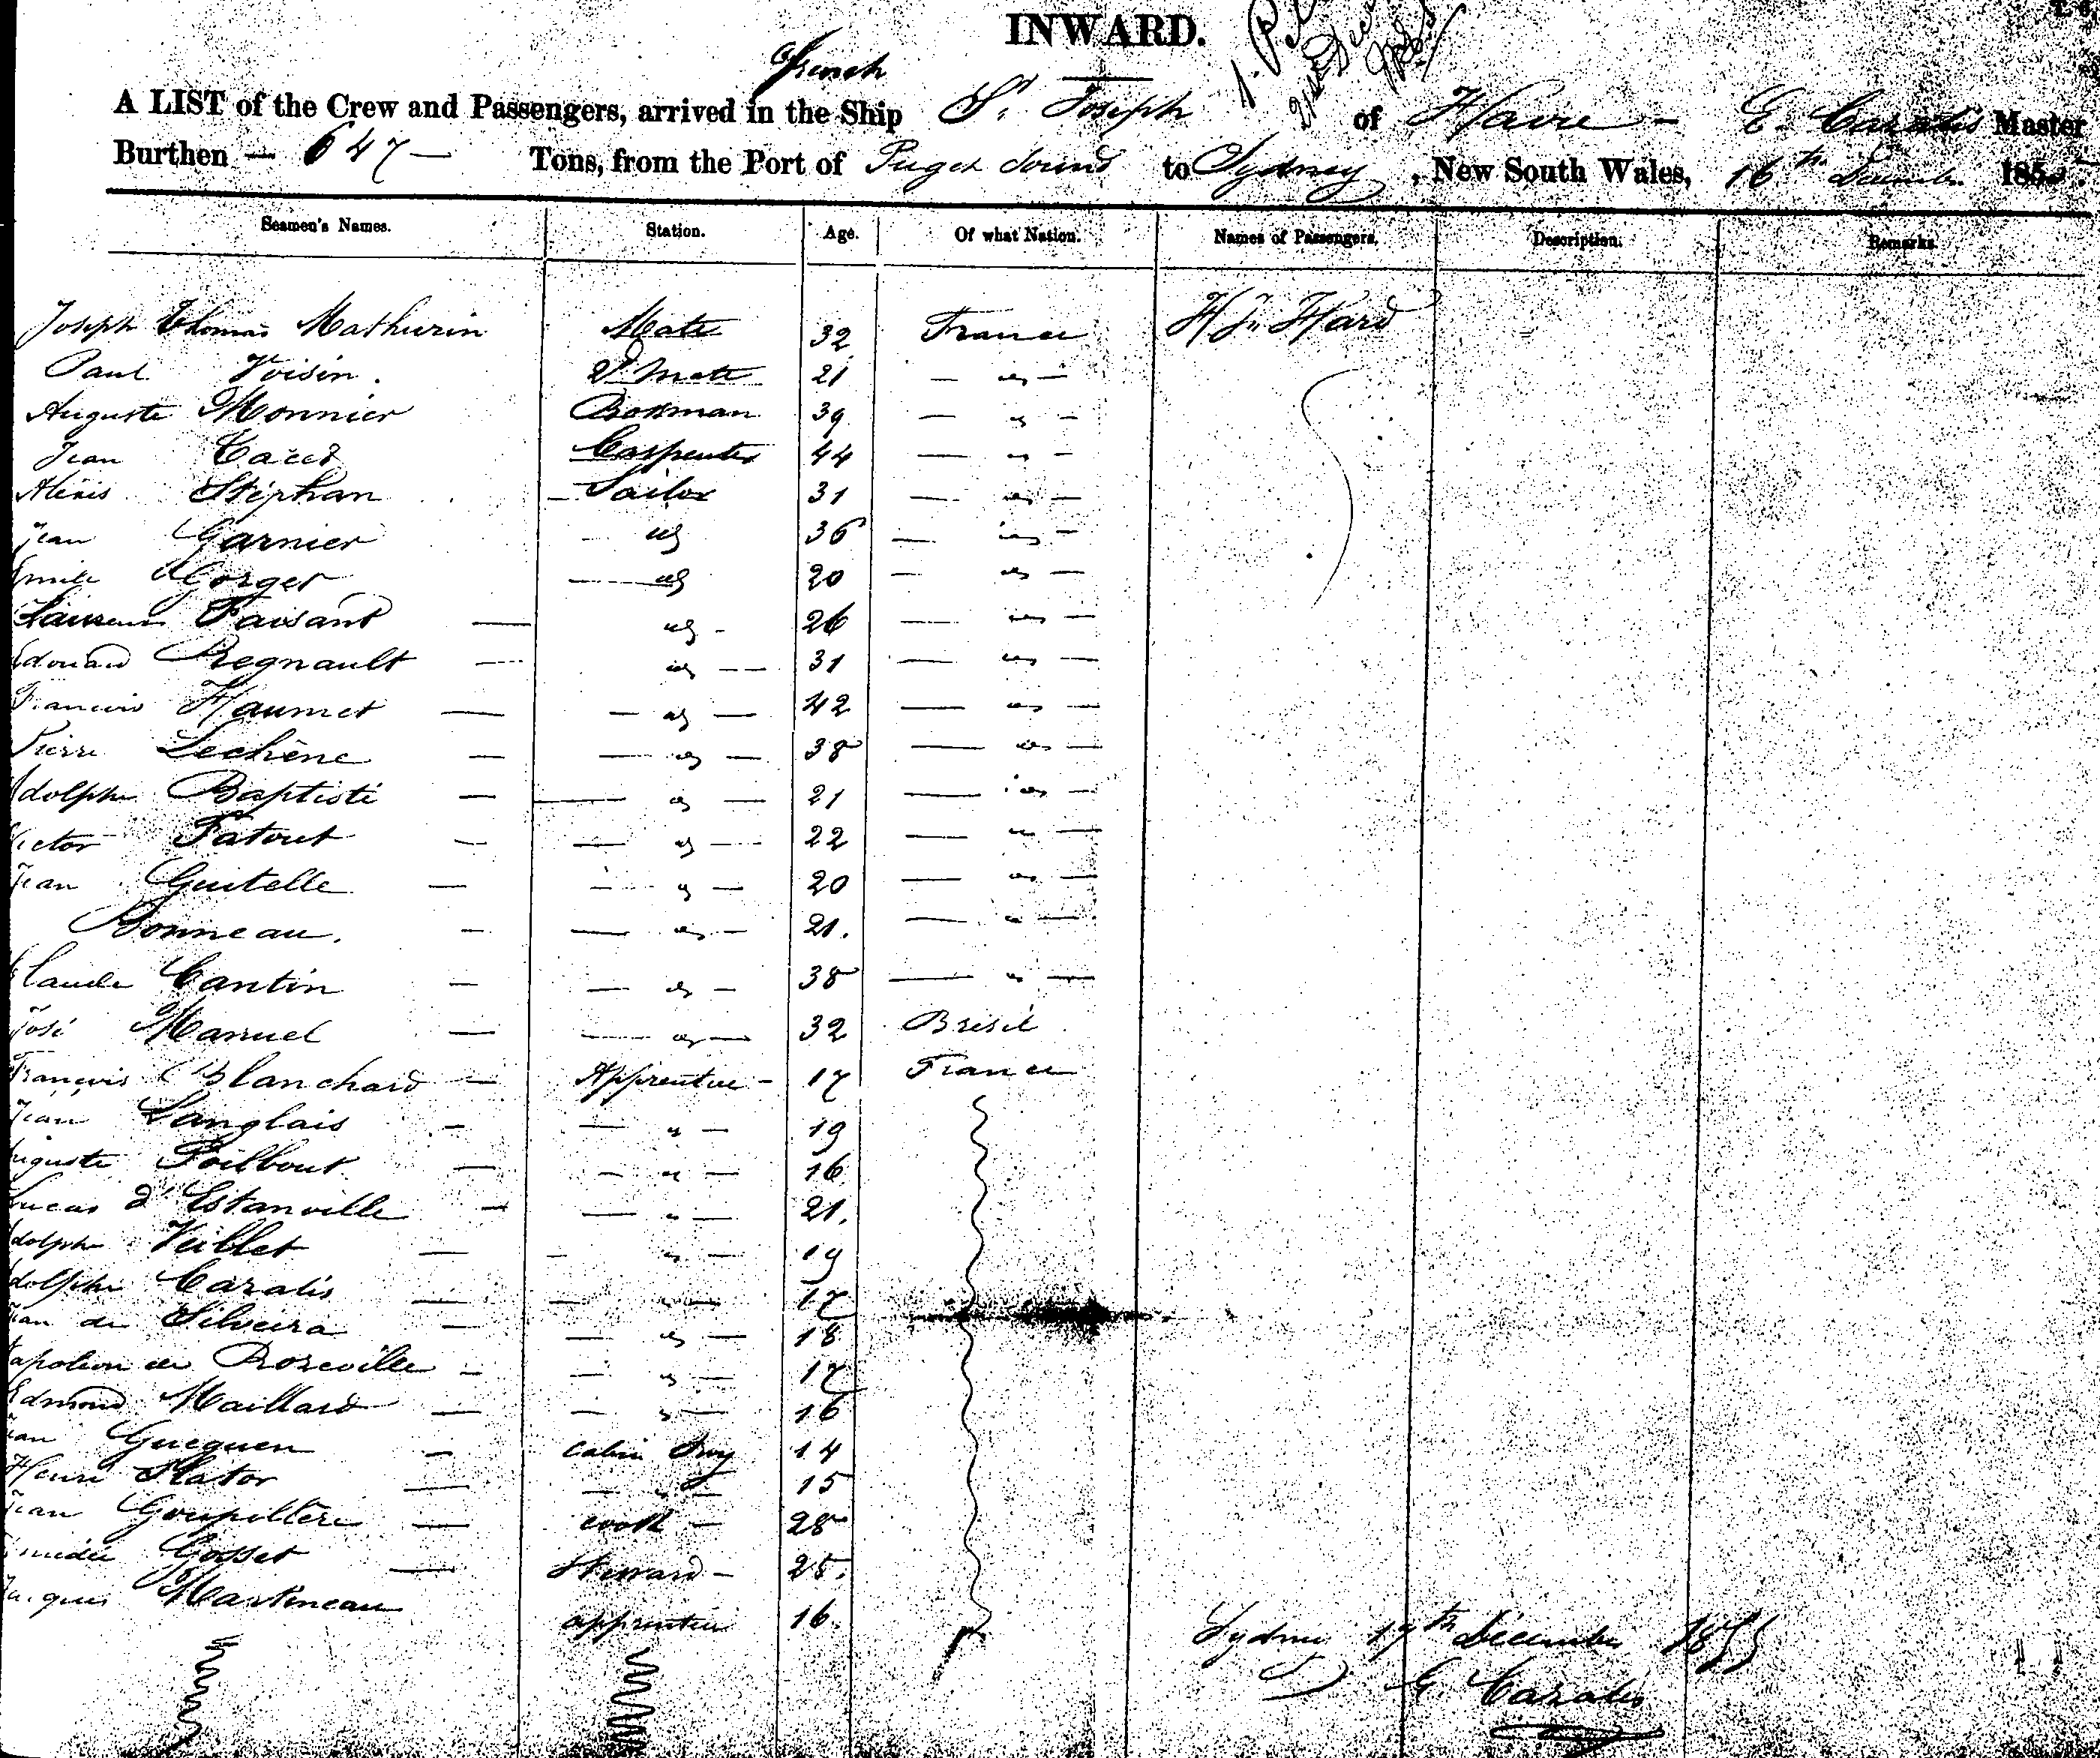 INWARD.
French
A LIST of the Crew and Passengers, arrived in the Ship St. Joseph of Havre - E. Cazalis Master
Burthen — 647 — Tons, from the Port of Puget Sound to Sydney, New South Wales, 16th December 1855.
Seamen's Names. Station. Age. Of what Nation. Names of Passengers. Description. Remarks.
Joseph Thomas Mathurin Mate 32 France
Paul Voisin. 2d Mate 21 — " —
Auguste Monnier 39 — " —
Jean Carpenter 44 — " —
Alexis Stéphan Sailor 31 — " —
Jean Garnier " 36 — " —
Emile Gorget — " 20 — " —
Faisant — " - 26 — " —
Edouard Regnault — " — 31 — " —
Francois Haumet — — " — 42 — " —
Pierre Lechêne — — " — 38 — " —
Adolphe Baptiste — — " — 21 — " —
Victor Fatout — — " — 22 — " —
Jean Guitelle — — " — 20 — " —
Bonneau. — — " — 21. — " —
Claude Cantin — — " — 38 — " —
José Manuel — — " — 32 Brésil
François Blanchard — Apprentice - 17 France
Jean Langlais — — " — 19
Auguste Poilbout — — " — 16
Lucas d'Estanville — — " — 21.
Adolphe Veillet — — " — 19
Adolphe Cazalis — — " — 17
Jean de Silveira — — " — 18
Napoleon de Rozeville — — " — 17
Edmond Maillard — — " — 16
Jean Gueguen — Cabin Boy 14
Henri Flator — — " — 15
Jean Goupillère — cook — 28
Gosset — Steward — 25.
Jacques Martineau apprentice 16.
Sydney 17th December 1855
E. Cazalis